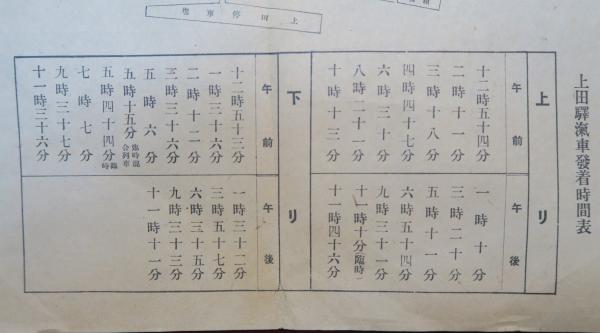 上田停車場
上田驛滊車發着時間表
上リ
午前
十二時五十四分
二時十一分
三時十八分
四時四十七分
六時三十分
八時二十一分
十時十三分
午後
一時十分
三時二十分
五時十一分
六時五十四分
九時三十一分
十一時十分(臨時)
十一時四十六分
下リ
午前
十二時五十三分
一時三十六分
二時十二分
三時三十六分
五時六分
五時十五分 臨時混合列車
五時四十四分 臨時
七時七分
九時三十七分
十一時三十六分
午後
一時三十二分
三時五十七分
六時三十五分
九時三十三分
十一時十一分